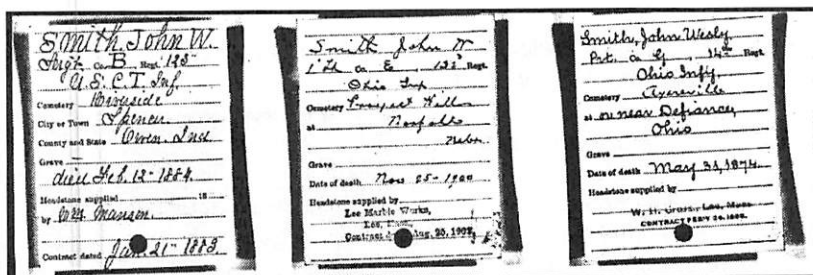 Smith, John W.
Sergt. Co. B, Regt. 123
U.S.C.T. Inf.
Cemetery Riverside
City or Town Spencer
County and State Owen, Ind
Grave
died Feb. 12-1884
Headstone supplied 18
by
Contract dated Jan. 21-1883
Smith John W
1" Lt Co. E, Regt.
Ohio Inf
Cemetery Prospect Hill
at Norfolk
Nebr
Grave
Date of death Nov 25-1900
Headstone supplied by
Lee Marble Works,
Lee,
Contract Aug. 20, 1902
Smith, John Wesly
Pvt. Co G, 14th Regt.
Ohio Infy
Cemetery
at or near Defiance,
Ohio
Grave
Date of death May 31, 1874
Headstone supplied by
W. H. Gross, Lee, Mass.
CONTRACT FEB'Y